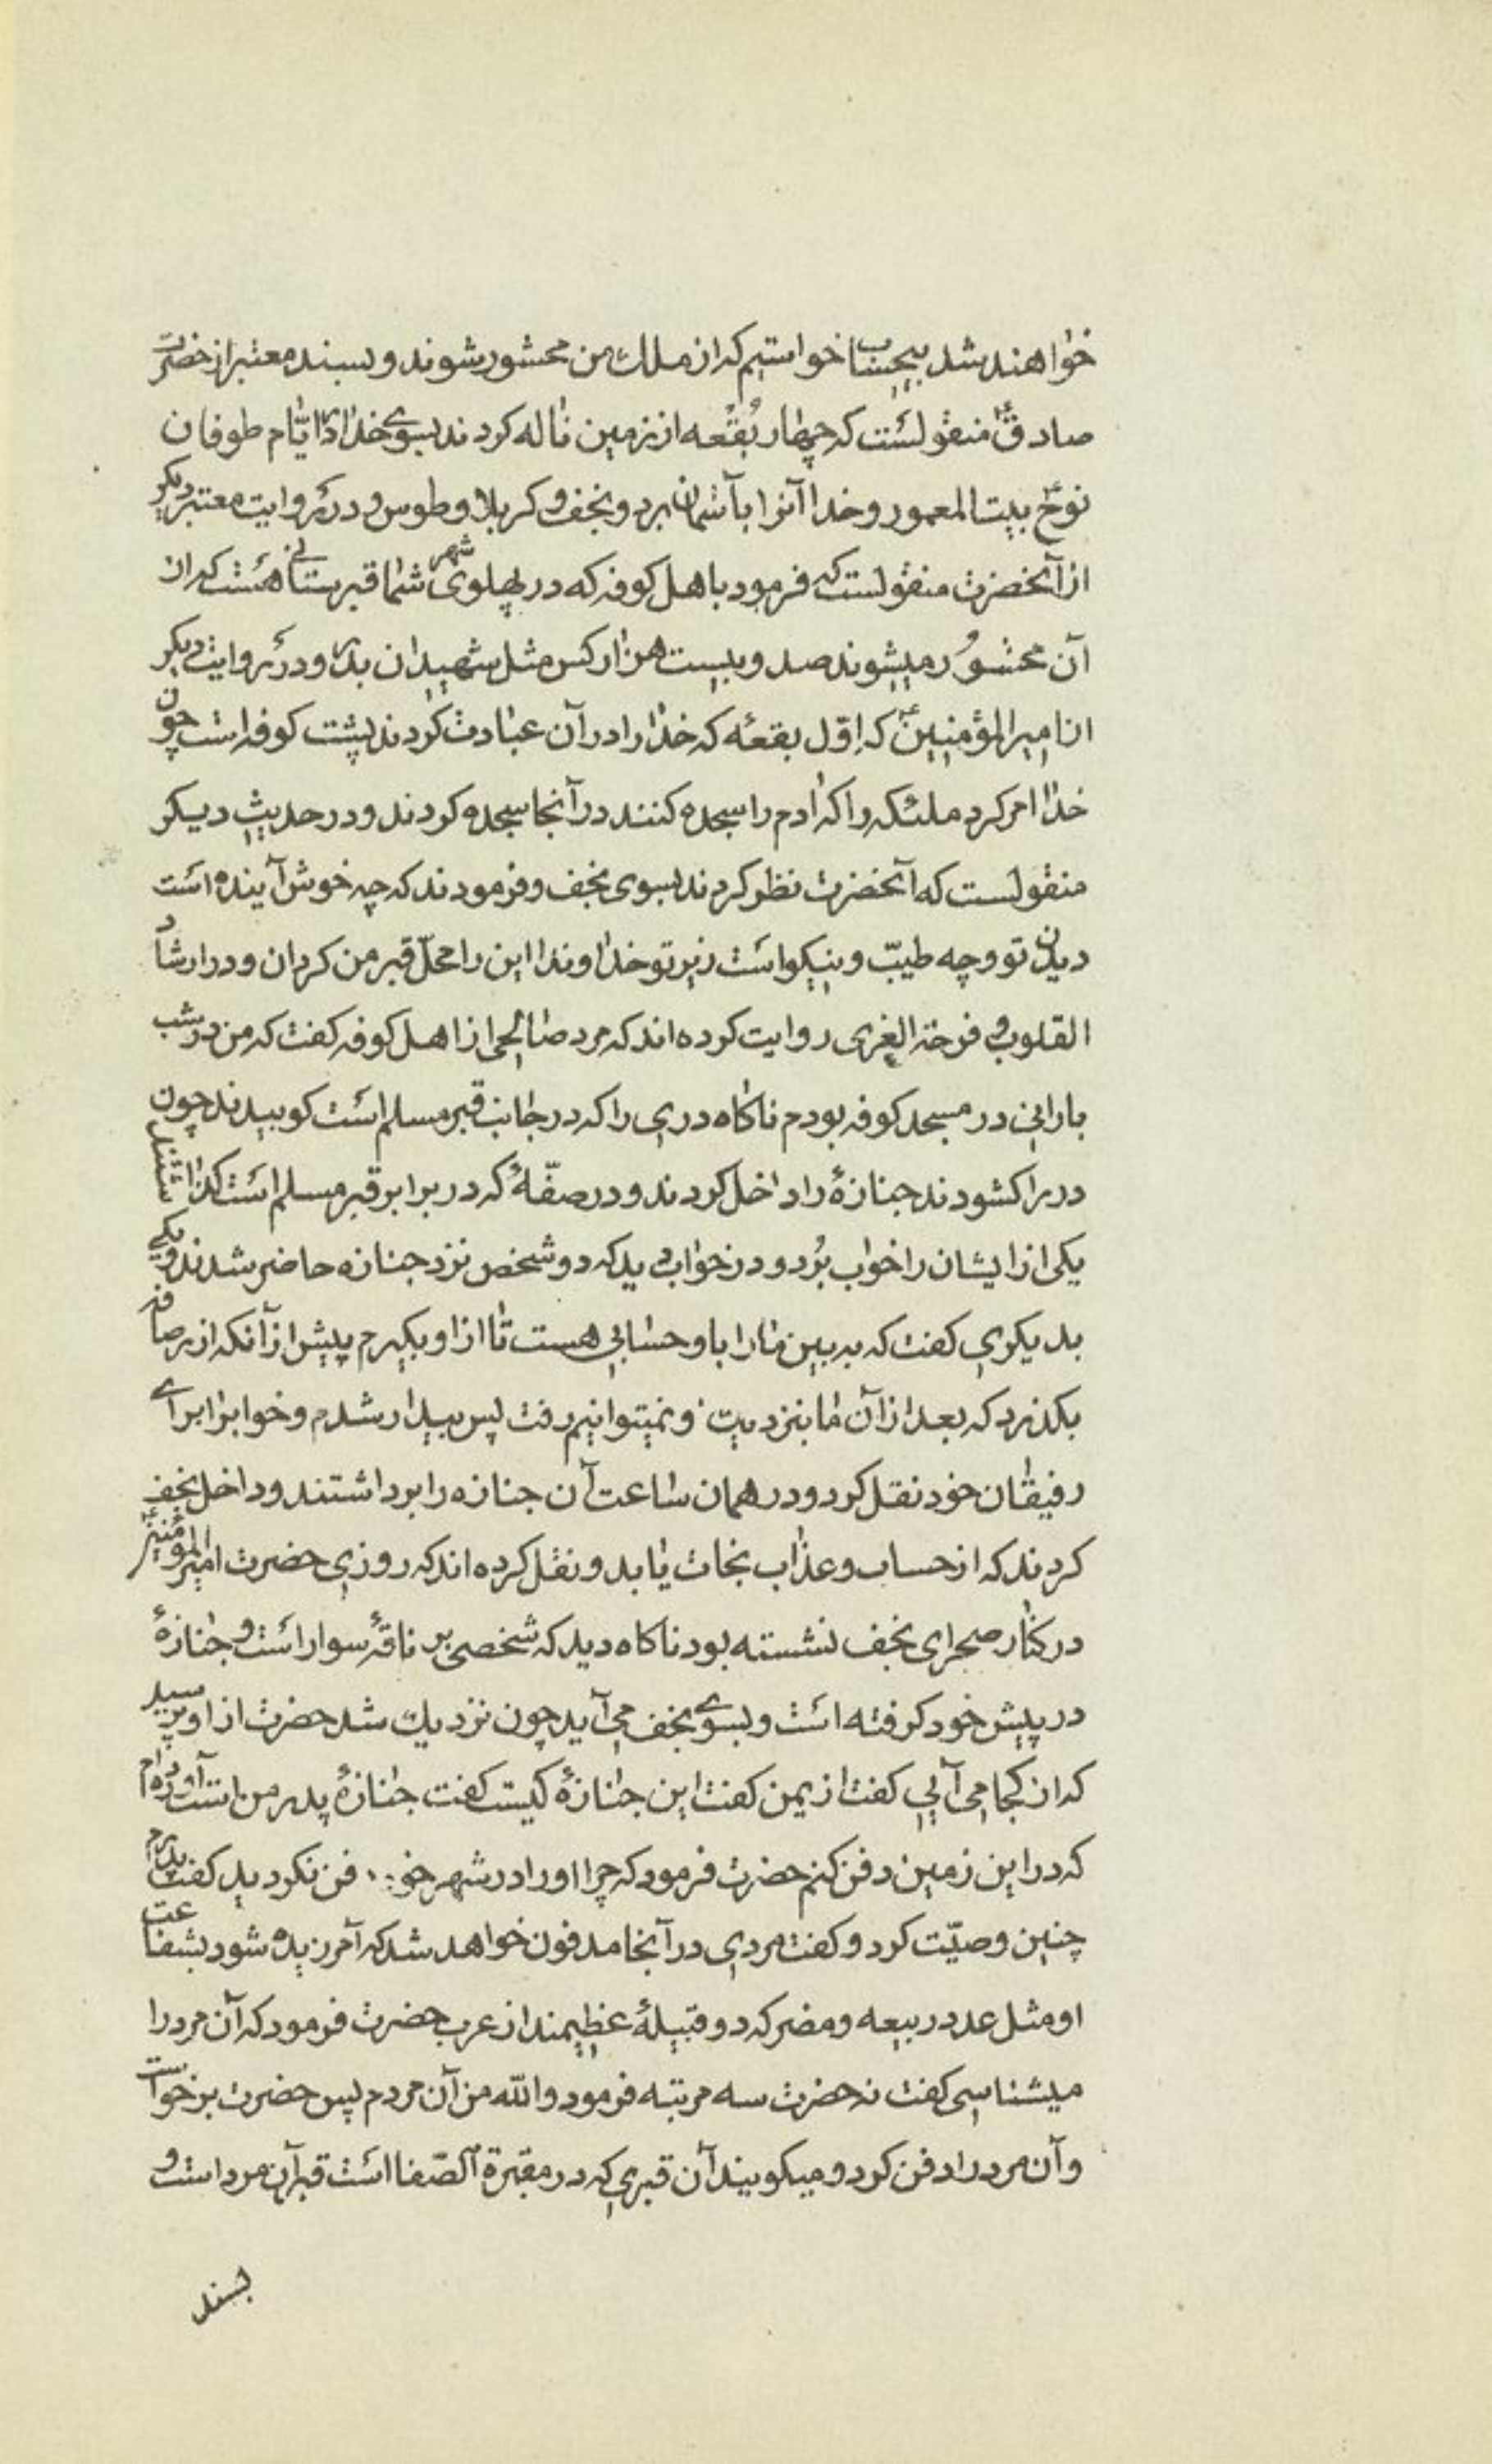 خواهند شد بیحساب خواستیم که از ملك من محشور شوند و بسند معتبر از حضرت
صادق ع منقولست که چهار بقعه از زمین ناله کردند بسوی خدا در ایّام طوفان
نوح ع بیت المعمور و خدا آنرا بآسمان برد و نجف و کربلا و طوس و در روایت معتبر دیکر
از آنحضرت منقولست که فرمود باهل کوفه که در پهلوی شهر شما قبرستانی هست که از
آن محشور میشوند صد و بیست هزار کس مثل شهیدان بدر و در روایت دیکر
از امیر المؤمنین ع که اوّل بقعه که خدا را در آن عبادت کردند پشت کوفه است چون
خدا امر کرد ملئکه را که آدم را سجده کنند در آنجا سجده کردند و در حدیث دیکر
منقولست که آنحضرت نظر کردند بسوی نجف و فرمودند که چه خوش آینده است
دیدن تو و چه طیّب و نیکو است زیر تو خداوندا این را محلّ قبر من کردان و در ارشاد
القلوب و فرحة الغری روایت کرده اند که مرد صالحی از اهل کوفه کفت که من در شب
بارانی در مسجد کوفه بودم ناکاه دری را که در جانب قبر مسلم است کوبیدند چون
در را کشودند جنازهٔ را داخل کردند و در صفّهٔ که در برابر قبر مسلم است کذاشتند
یکی از ایشان را خواب برد و در خواب دید که دو شخص نزد جنازه حاضر شدند و یکی
بدیکری کفت که به بین ما را با او حسابی هست تا از او بکیرم پیش از آنکه از رصافه
بکذرد که بعد از آن ما بنزدیت و نمیتوانیم رفت پس بیدار شدم و خوابرا برای
رفیقان خود نقل کرد و در همان ساعت آن جنازه را برداشتند و داخل نجف
کردند که از حساب و عذاب نجات یابد و نقل کرده اند که روزی حضرت امیر المؤمنین ع
در کنار صحرای نجف نشسته بود ناکاه دید که شخصی بر ناقهٔ سوار است و جنازهٔ
در پیش خود کرفته است و بسوی نجف می آید چون نزدیك شد حضرت از او پرسید
که از کجا می آیی کفت از یمن کفت این جنازهٔ کیست کفت جنازهٔ پدر من است آورده ام
که در این زمین دفن کنم حضرت فرمود که چرا او را در شهر خو.. فن نکردید کفت پدرم
چنین وصیّت کرد و کفت مردی در آنجا مدفون خواهد شد که آمرزیده شود بشفاعت
او مثل عدد ربیعه و مضر که دو قبیلهٔ عظیمند از عرب حضرت فرمود که آن مرد را
میشناسی کفت نه حضرت سه مرتبه فرمود والله من آن مردم پس حضرت برخواست
و آن مرد را دفن کرد و میکویند آن قبری که در مقبرة الصّفا است قبر آن مرد است و
بسند